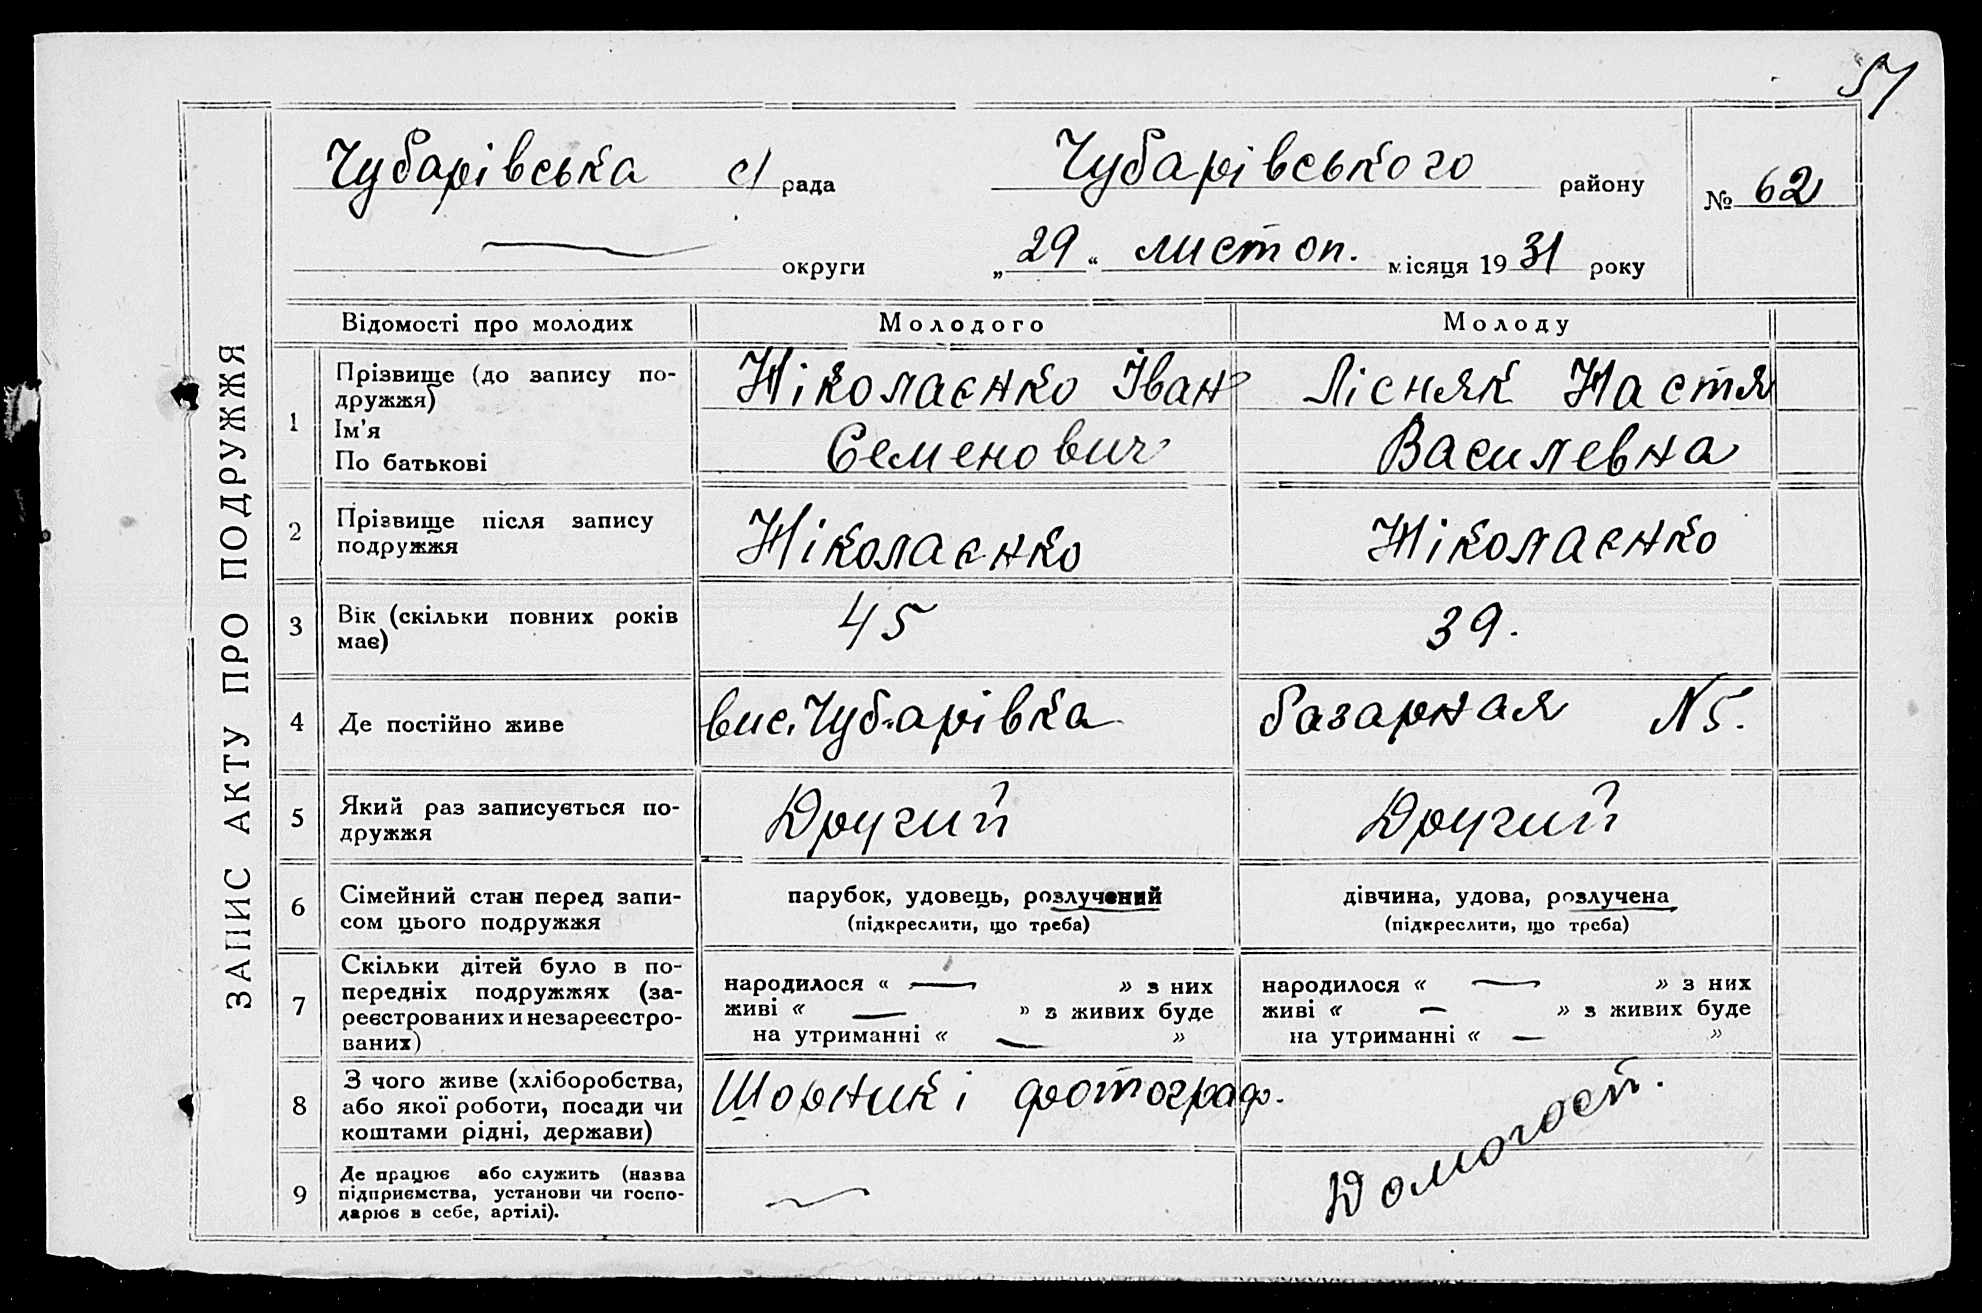 57
Чубарівська с/рада Чубарівського району № 62
округи „29“ листоп. місяця 1931 року
ЗАПИС АКТУ ПРО ПОДРУЖЖЯ
Відомості про молодих Молодого Молоду
1 Прізвище (до запису по-
дружжя)
Ім'я
По батькові
Ніколаєнко Іван
Семенович
Лісняк Настя
Василевна
2 Прізвище після запису
подружжя
Ніколаєнко Ніколаєнко
3 Вік (скільки повних років
має)
45 39.
4 Де постійно живе вис. Чубарівка базарная N5.
5 Який раз записується по-
дружжя
Другий Другий
6 Сімейний стан перед запи-
сом цього подружжя
парубок, удовець, розлучений
(підкреслити, що треба)
дівчина, удова, розлучена
(підкреслити, що треба)
7 Скільки дітей було в по-
передніх подружжях (за-
реєстрованих и незареєстро-
ваних)
народилося « — » з них
живі « — » з живих буде
на утриманні « — »
народилося « — » з них
живі « — » з живих буде
на утриманні « — »
8 З чого живе (хліборобства,
або якої роботи, посади чи
коштами рідні, держави)
Шорник і фотограф.
Домогосп.
9 Де працює або служить (назва
підприємства, установи чи госпо-
дарює в себе, артілі).
—